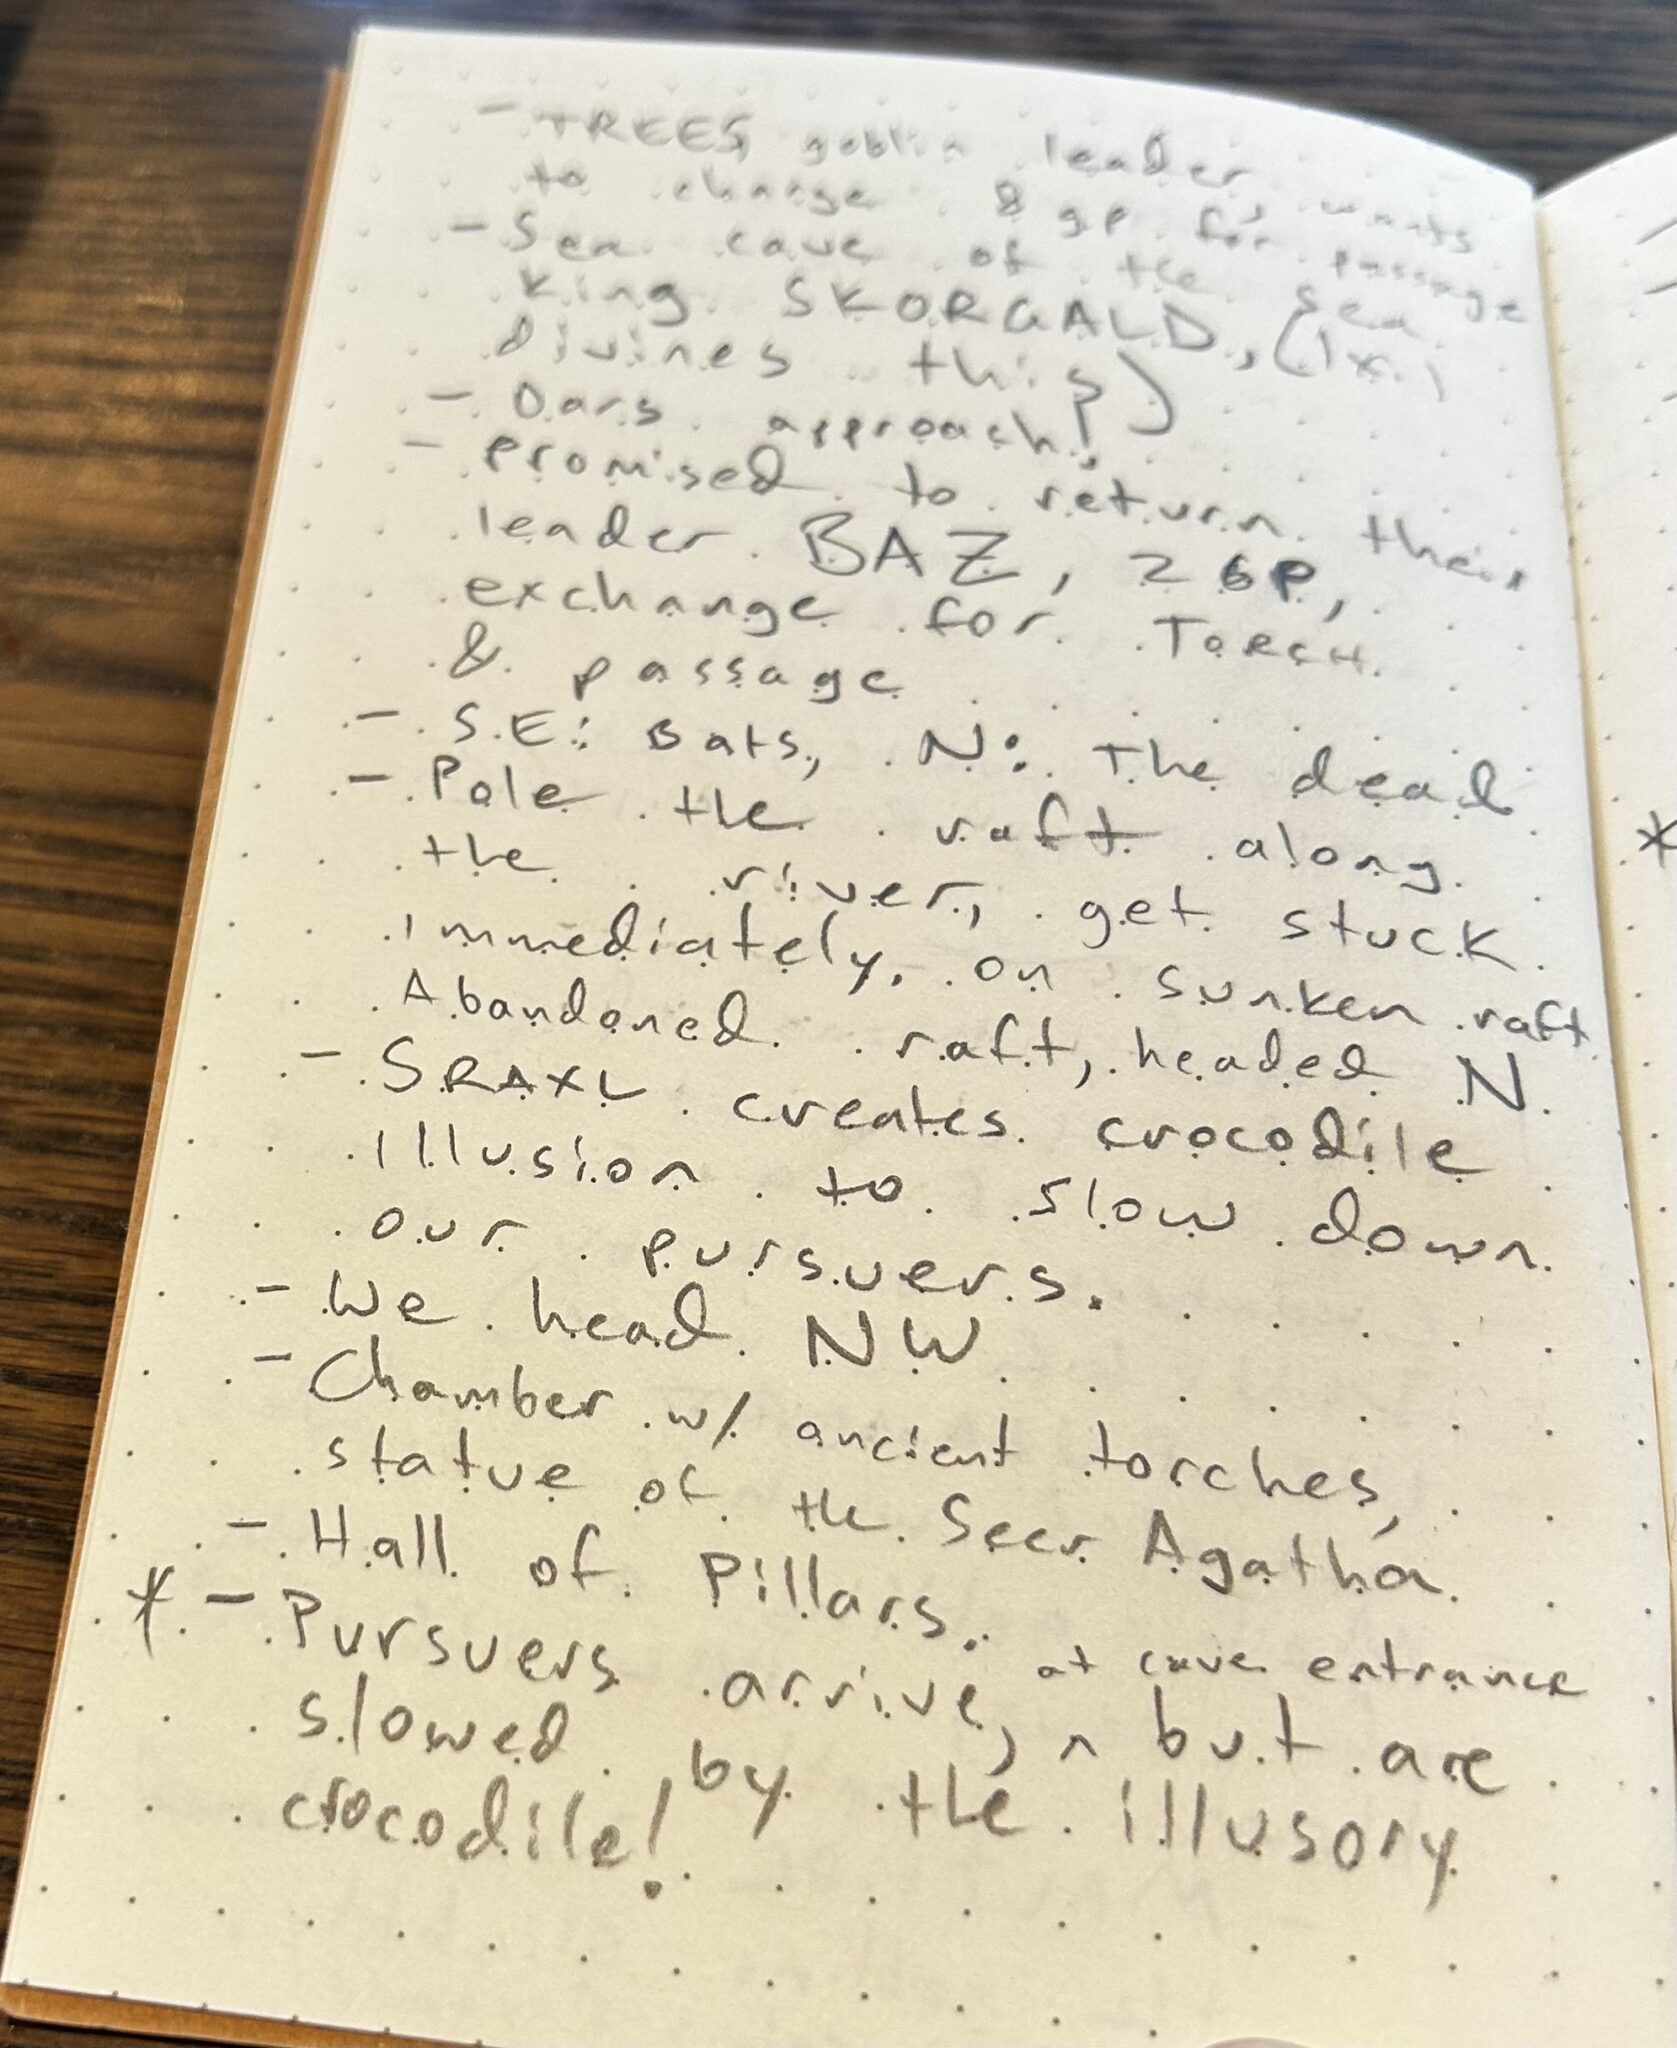 - TREES, goblin leader, wants
to charge 8 gp for passage
- Sea cave of the Sea
King SKORGALD, (Ix.
divines this)
- Oars approach!
- promised to return their
leader BAZ, 2 GP,
exchange for TORCH
& passage
- S.E: Bats, N: The dead
- Pole the raft along
the river, get stuck
immediately, on sunken raft.
Abandoned raft, headed N.
- SRAXL creates crocodile
illusion to slow down
our pursuers.
- We head NW
- Chamber w/ ancient torches,
statue of the Seer Agatha
- Hall of Pillars.
* - Pursuers arrive, at cave entrance
^ but are
slowed by the illusory
crocodile!
*